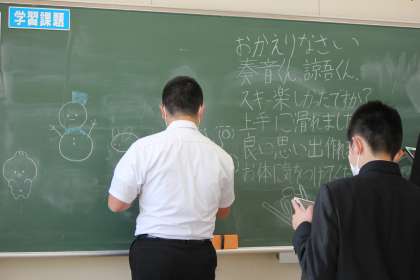 学習課題
おかえりなさい
奏音くん、諒吾くん、
スキー楽しかったですか?
上手に滑れまし
良い思い出作れ
お体に気をつけてく